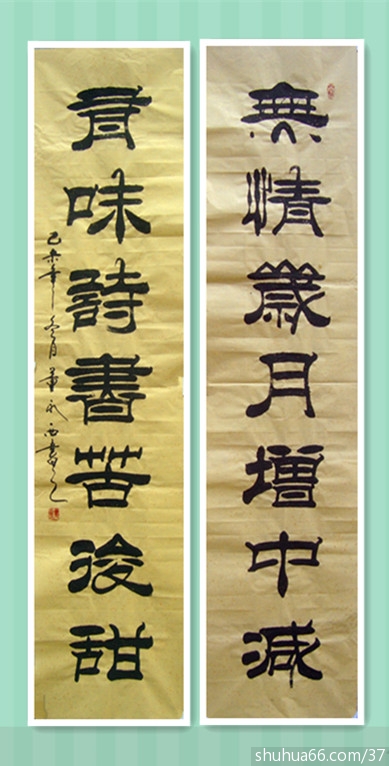 無情歲月增中減
有味詩書苦後甜
己未年冬月董西書
shuhua66.com/37